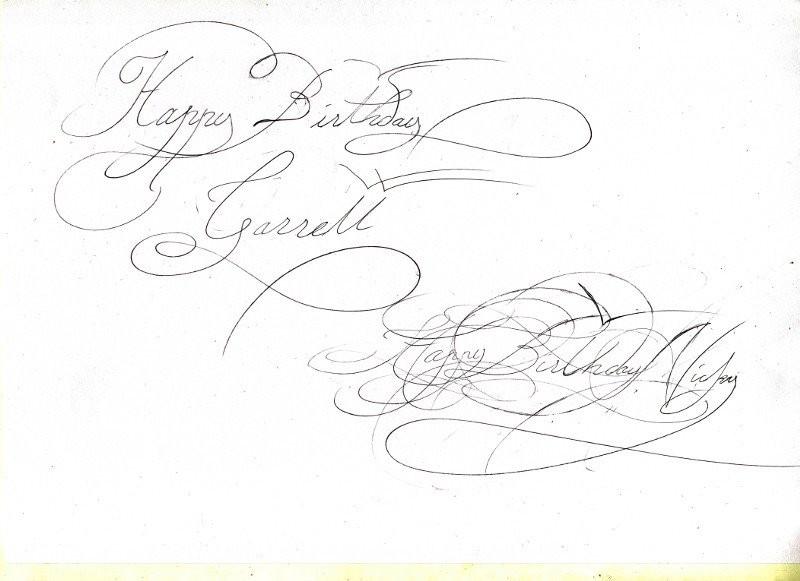 Happy Birthday
Garrett
Happy Birthday